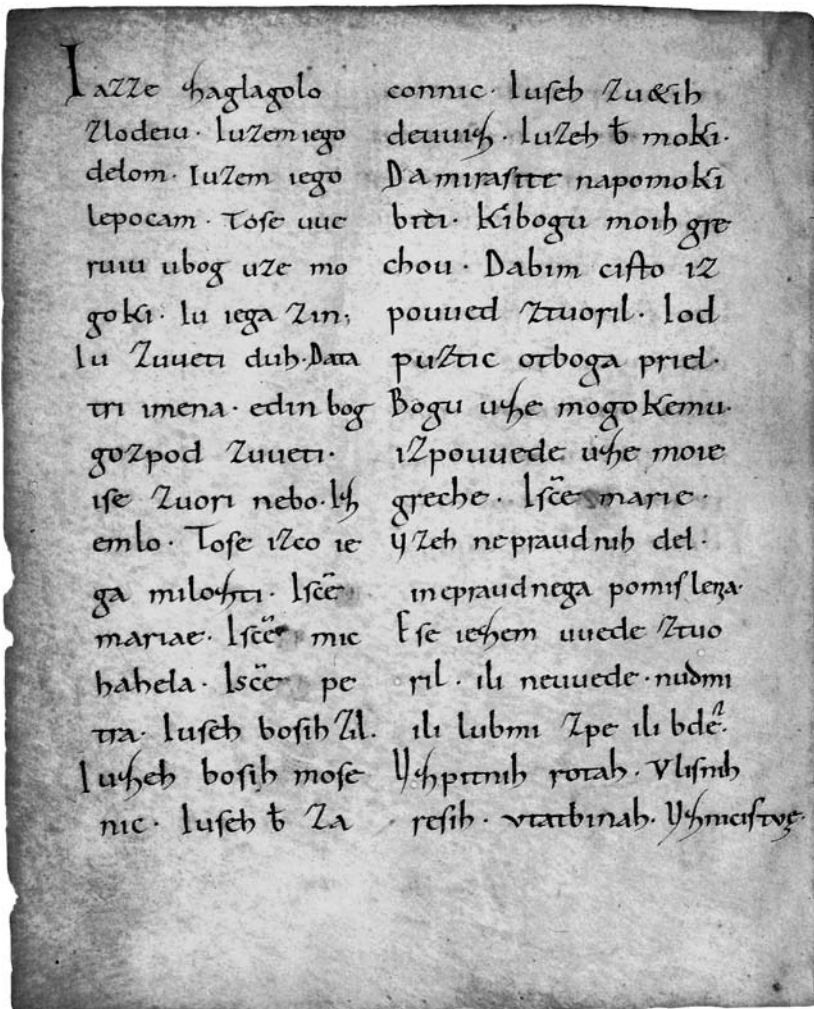 Iazze zaglagolo
zlodeiu. Iuzem iego
delom. Iuzem iego
lepocam. Tose uue
ruiu ubog uze mo
goki. Iu iega zin,
Iu zuueti duh. Data
tri imena. edin bog
gozpod zuueti.
ise zuori nebo. Iz
emlo. Tose izco ie
ga milozti. Iscē
mariae. Iscē mic
hahela. Iscē pe
tra. Iuseh bosih zil.
Iuzeh bosih mose
nic. Iuseh ƀ za
connic. Iuseh zu&ih
deuuiz. Iuzeh ƀ moki.
Da mirasite napomoki
biti. Kibogu moih gre
chou. Dabim cisto iz
pouued ztuoril. Iod
puztic otboga priel.
Bogu uze mogokemu.
izpouuede uze moie
greche. Iscē marie.
Vzeh nepraudnih del.
inepraudnega pomislena.
Ese iezem uuede ztuo
ril. ili neuuede. nudmi
ili lubmi zpe ili bdē.
Vzpitnih rotah. Vlisnih
resih. vtatbinah. Vznicistve.